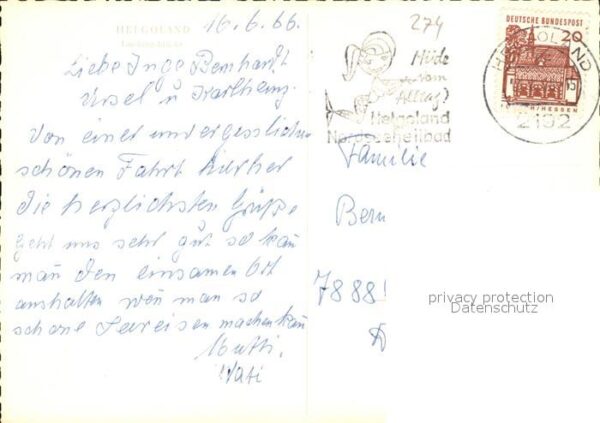 HELGOLAND
16.6.66.
Liebe Inge Bernhardt
Ursel u Karlheinz.
Von einer unvergesslichen
schönen Fahrt hierher
die herzlichsten Grüße
geht uns sehr gut so kan
man den einsamen Ort
aushalten wen man so
schöne Seereisen machen kan
Mutti.
Vati
274
Müde
vom
Alltag?
Helgoland
Nordseeheilbad
DEUTSCHE BUNDESPOST
20
HELGOLAND
2192
/HESSEN
Familie
Bern
7888
privacy protection
Datenschutz